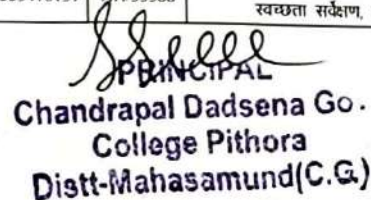 स्वच्छता सर्वेक्षण,
PRINCIPAL
Chandrapal Dadsena Go.
College Pithora
Distt-Mahasamund(C.G.)